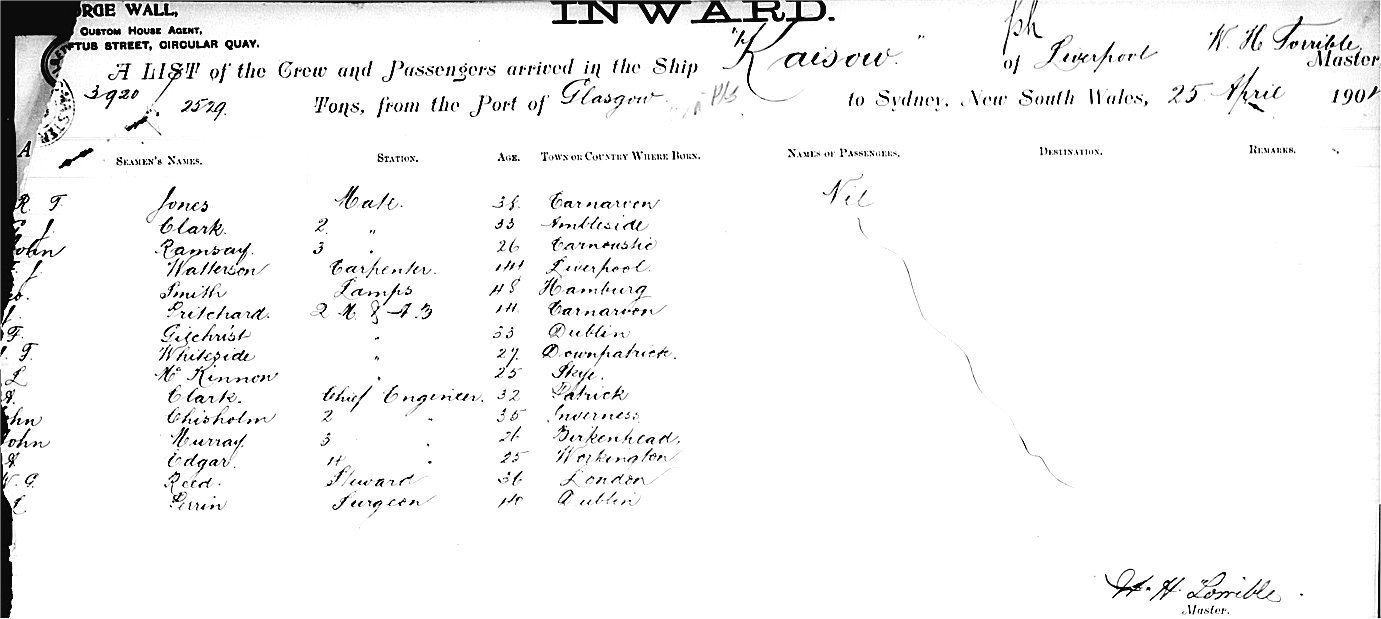 INWARD.
ORGE WALL,
CUSTOM HOUSE AGENT,
FTUS STREET, CIRCULAR QUAY.
A LIST of the Crew and Passengers arrived in the Ship "Kaisow" of Liverpool W. H. Torrible Master
3920 2529 Tons, from the Port of Glasgow to Sydney, New South Wales, 25 April 190
SEAMEN'S NAMES. STATION. AGE. TOWN OR COUNTRY WHERE BORN. NAMES OF PASSENGERS. DESTINATION. REMARKS.
R. T. Jones Mate. 38. Carnarvon Nil
J Clark. 2 " 33 Ambleside
John Ramsay. 3 " 26 Carnoustie
J Watterson Carpenter. 44 Liverpool.
Smith Lamps 48 Hamburg
Pritchard. Q M. & A.B Carnarvon
F. Gilchrist " 33 Dublin
T. Whiteside " 27. Downpatrick.
L Mc Kinnon " 25 Skye.
A. Clark. Chief Engineer. 32 Patrick
hn Chisholm 2 " 35 Inverness
John Murray 3 " 26 Birkenhead.
A Edgar. 4 " 25 Workington
W. G. Reed. Steward 36 London
L Perrin Surgeon 40 Dublin
W. H. Torrible.
Master.